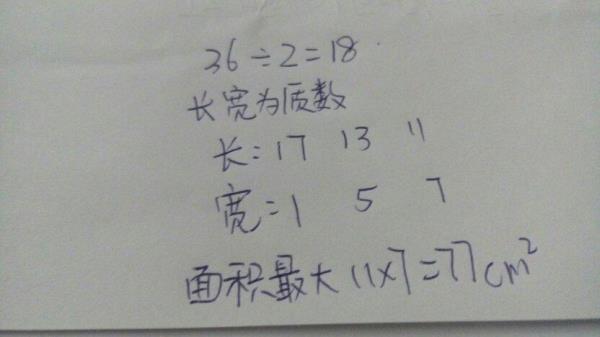 36÷2=18
长宽为质数
长:17 13 11
宽:1 5 7
面积最大 11×7=77cm²